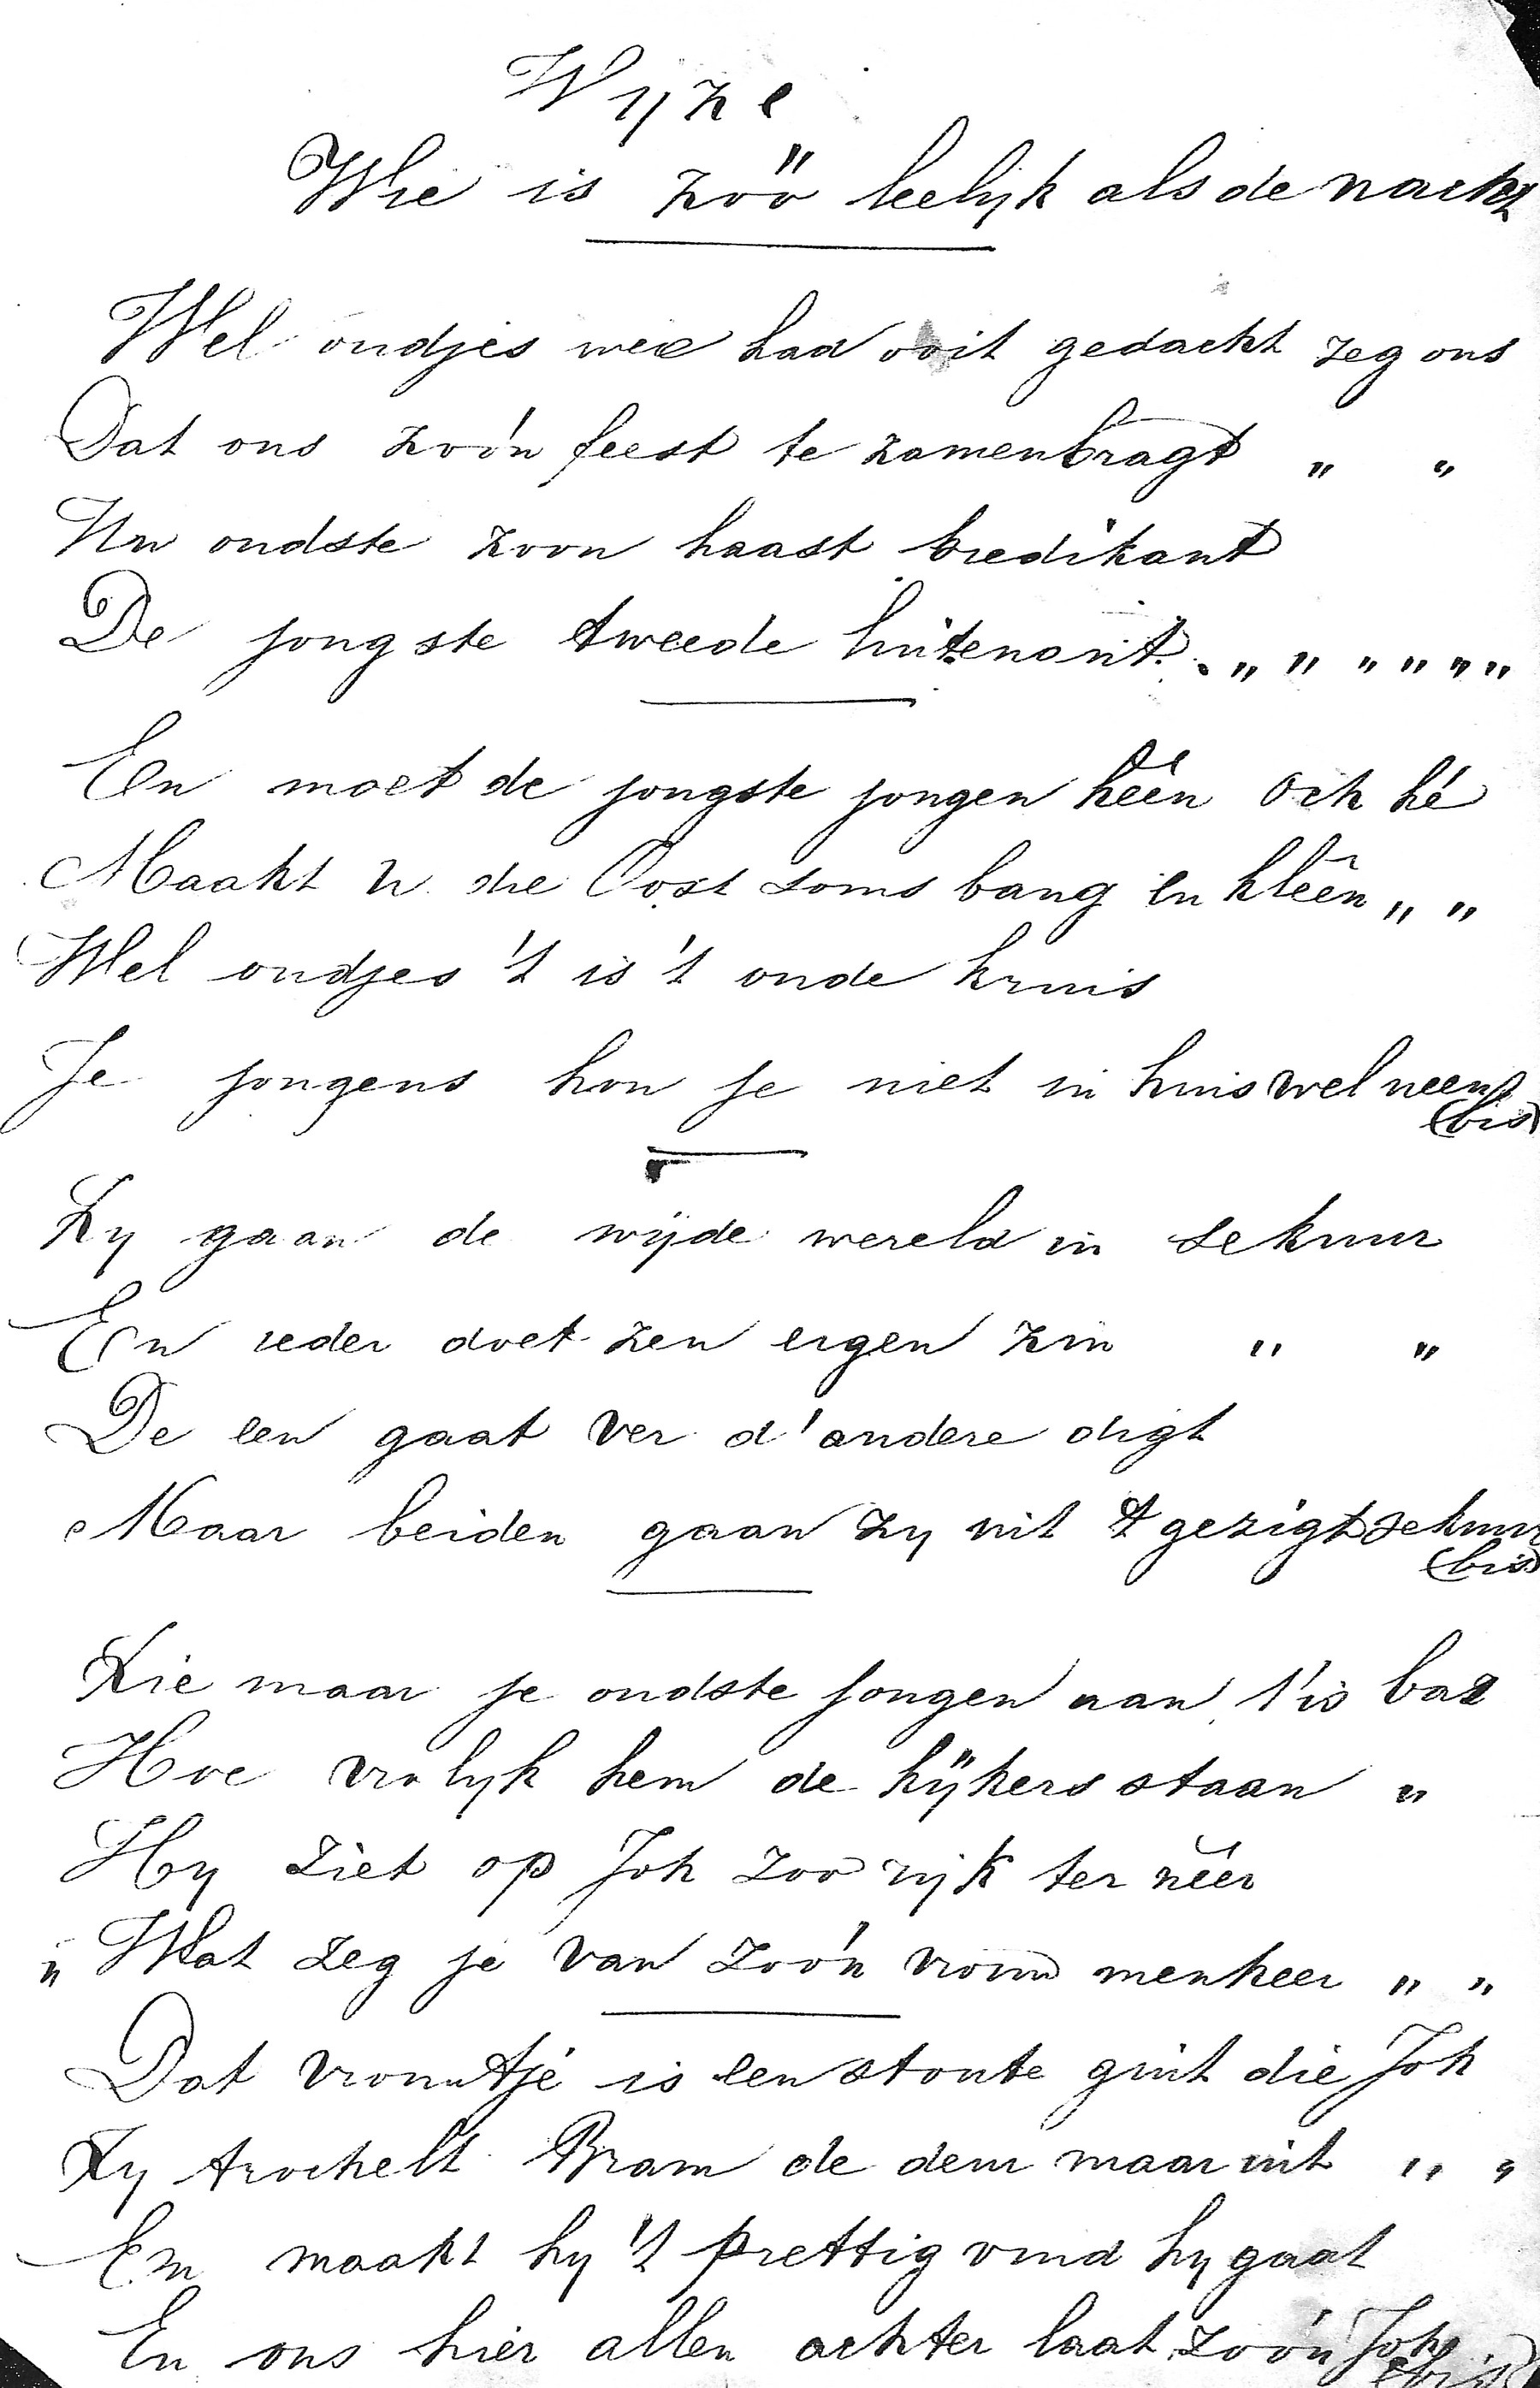 Wijze
Wie is zöö leelijk als de nacht
Wel oudjes wie had ooit gedacht zeg ons
Dat ons zoo'n feest te zamenbragt " "
Uw oudste zoon haast predikant
De jongste tweede luitenant. " " " " " "
En moet de jongste jongen heên och hé
Maakt u die Oost soms bang en kleên " "
Wel oudjes 't is 't oude kruis
Je jongens hou je niet in huis wel neent
(bis)
Zy gaan de wijde wereld in sekuur
En ieder doet zen eigen zin " "
De een gaat ver d'andere digt
Maar beiden gaan zy uit 't gezigt sekuur
(bis)
Zie maar je oudste jongen aan t'is baz
Hoe vrolyk hem de kijkers staan "
Hy ziet op Joh zoo rijk ter nêer
" Wat zeg je van zoo'n vrouw menheer " "
Dat vrouwtje is een stoute guit die Joh
Zy trochelt Bram de deur maar uit " "
En maakt hy 't prettig vind hy gaat
En ons hier allen achter laat zoo'n Joh
(bis)